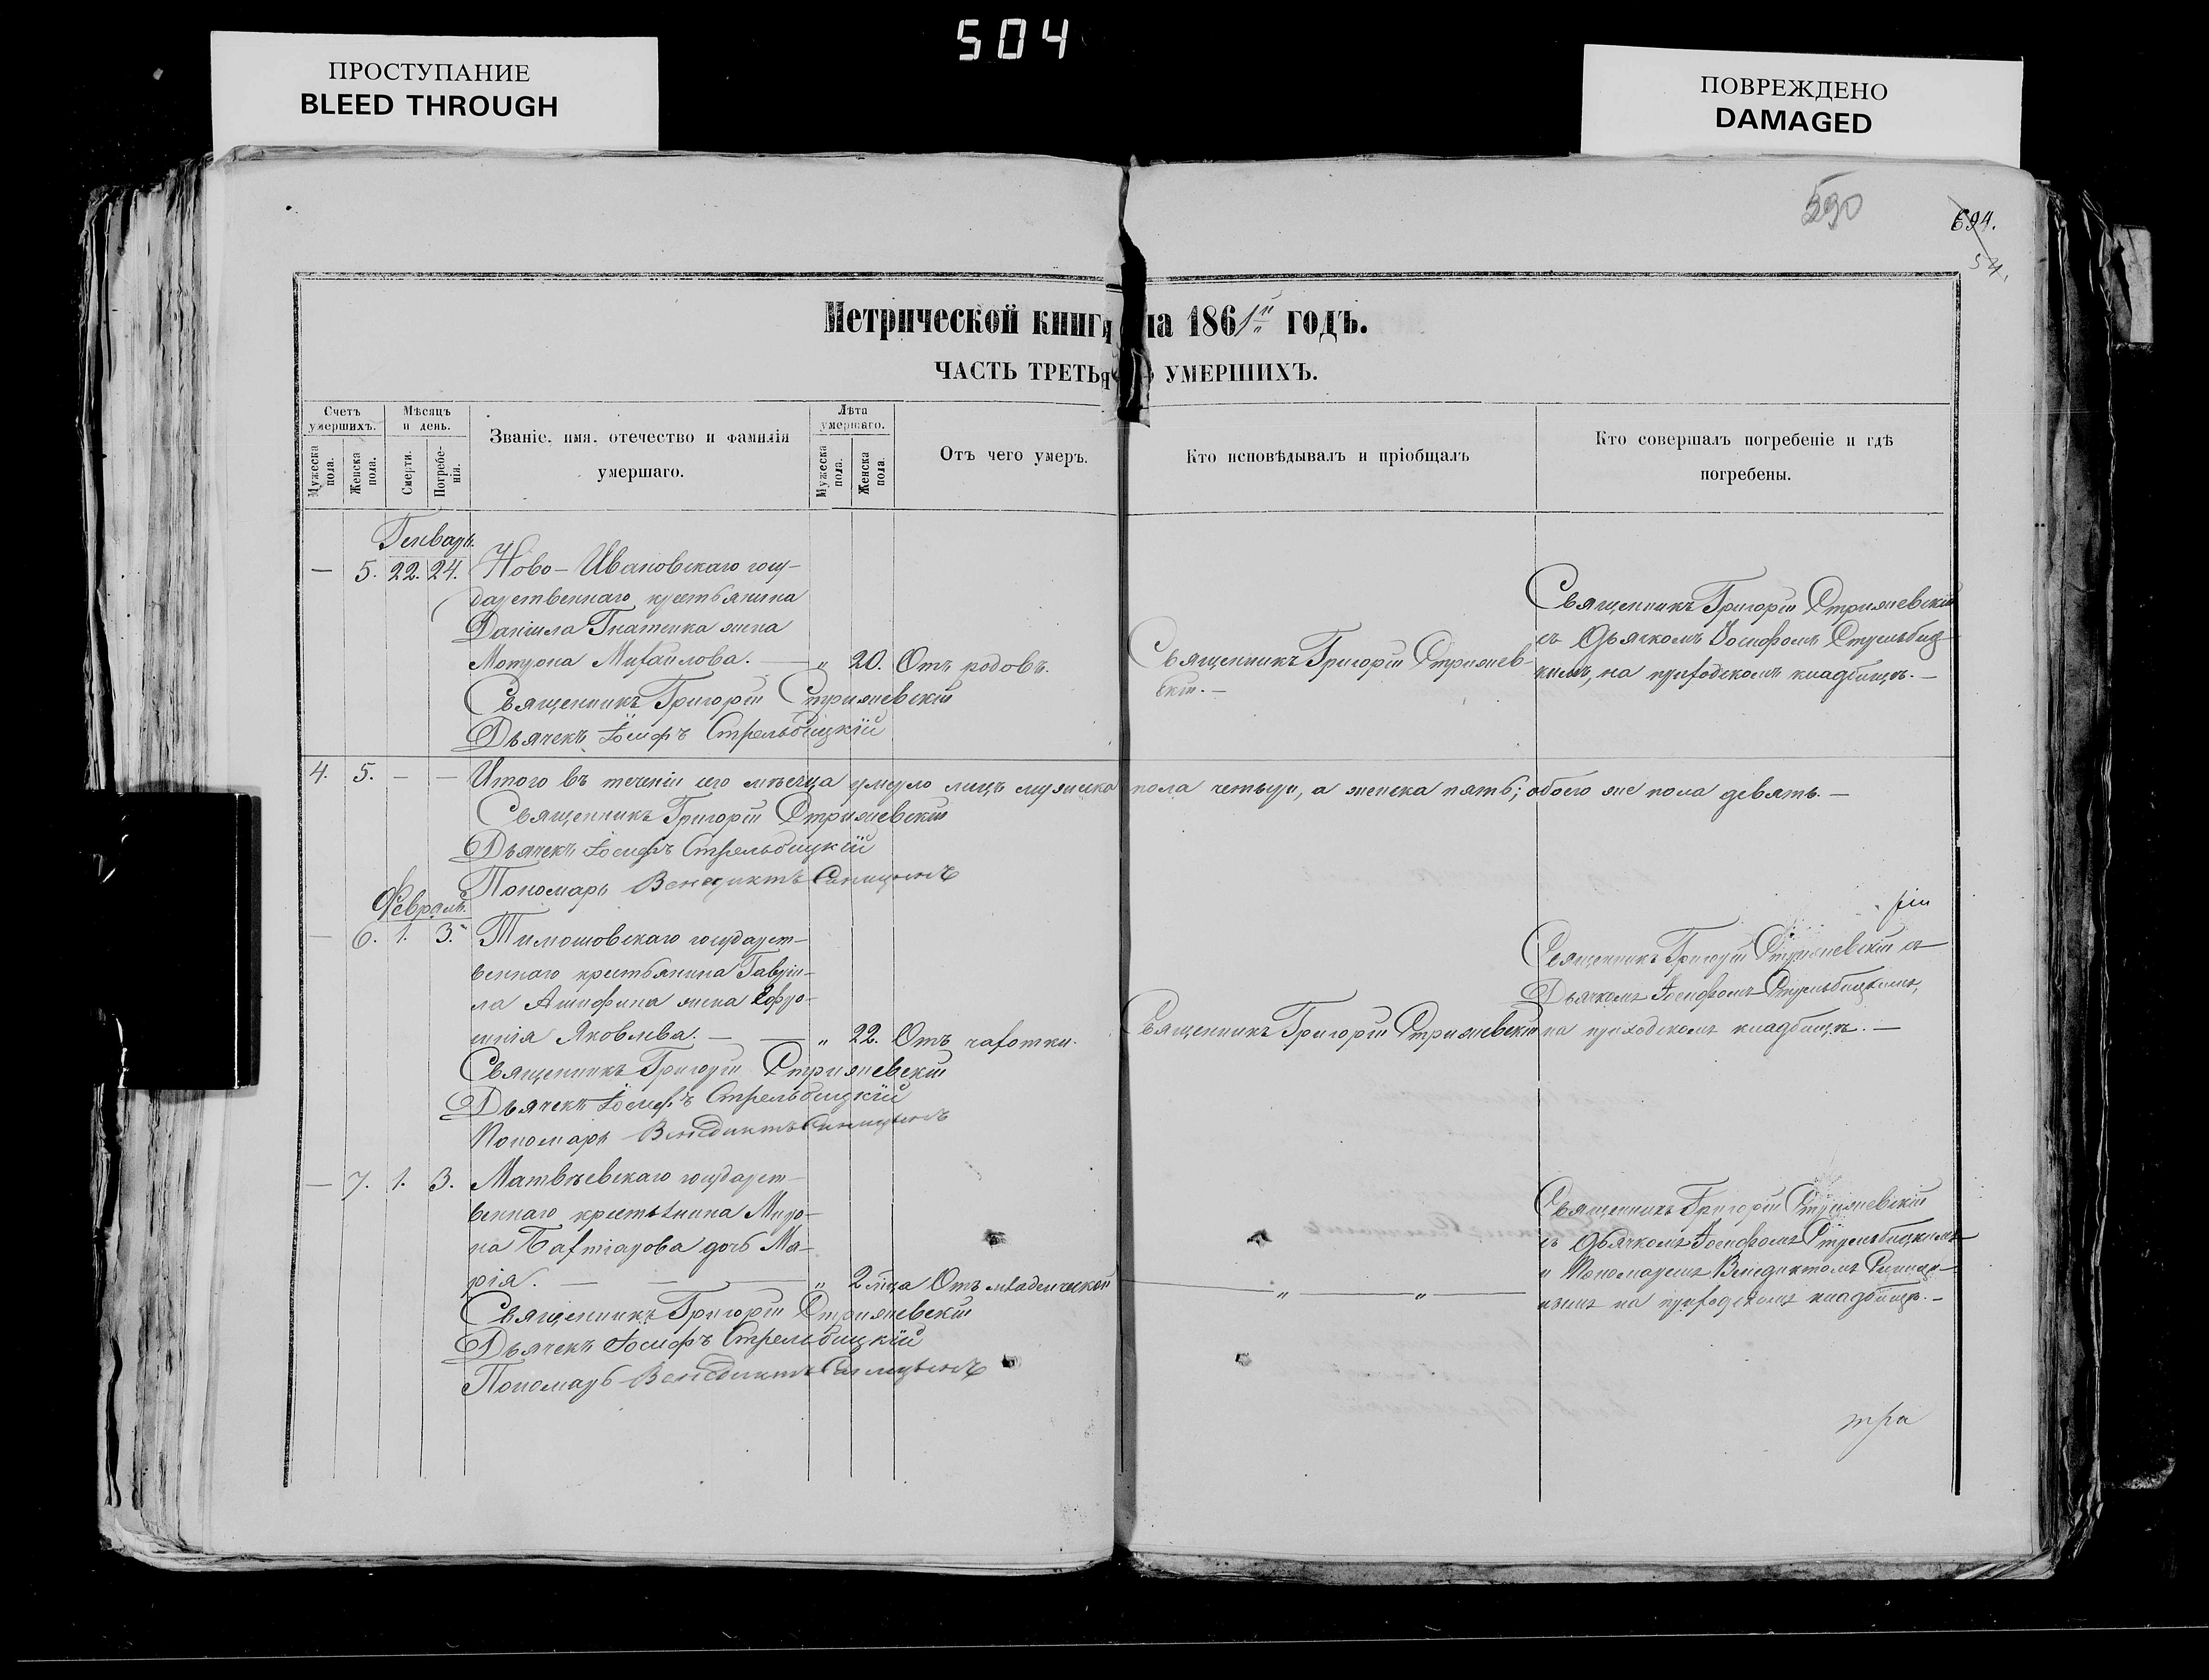 504
ПРОСТУПАНИЕ
BLEED THROUGH
ПОВРЕЖДЕНО
DAMAGED
590
694.
54.
Метрической книги на 1861й годъ.
ЧАСТЬ ТРЕТЬЯ УМЕРШИХЪ.
Счетъ умершихъ.
Мужеска пола.
Женска пола.
Мѣсяцъ и день.
Смерти.
Погребенія.
Званіе. имя. отечество и фамилія
умершаго.
Лѣта умершаго.
Мужеска пола.
Женска пола.
Отъ чего умеръ.
Кто исповѣдывалъ и пріобщалъ
Кто совершалъ погребеніе и гдѣ
погребены.
Генварь.
— 5. 22. 24. Ново-Ивановскаго госу-
дарственнаго крестьянина
Даніила Гнатенка жена
Мотрона Михайлова. — „ 20. Отъ родовъ.
Священникъ Григорій Стрижевскій
Дьячекъ Іосифъ Стрельбицкій
Священникъ Григорій Стрижев-
скій.—
Священникъ Григорій Стрижевскій
съ Дьячкомъ Іосифомъ Стрельбиц-
кимъ, на приходскомъ кладбищѣ.—
4. 5. — — Итого въ теченіи сего мѣсяца умерло лицъ мужеска пола четыри, а женска пять; обоего же пола девять.—
Священникъ Григорій Стрижевскій
Дьячекъ Іосифъ Стрельбицкій
Пономарь Венедиктъ
Февраль.
— 6. 1. 3. Тимошовскаго государст-
веннаго крестьянина Гавріи-
ла жена Ефро-
синія Яковлева. — — „ 22. Отъ чахотки.
Священникъ Григорій Стрижевскій
Дьячекъ Іосифъ Стрельбицкій
Пономарь Венедиктъ
Священникъ Григорій Стрижевскій
Священникъ Григорій Стрижевскій съ
Дьячкомъ Іосифомъ Стрельбицкимъ,
на приходскомъ кладбищѣ.—
— 7. 1. 3. Матвѣевскаго государст-
веннаго крестьянина Миро-
на дочь Ма-
рія. — — — „ 2 мца Отъ младенческой
Священникъ Григорій Стрижевскій
Дьячекъ Іосифъ Стрельбицкій
Пономарь Венедиктъ
— „ — „ —
Священникъ Григорій Стрижевскій
съ Дьячкомъ Іосифомъ Стрельбицкимъ
и Пономаремъ Венедиктомъ
на приходскомъ кладбищѣ.—